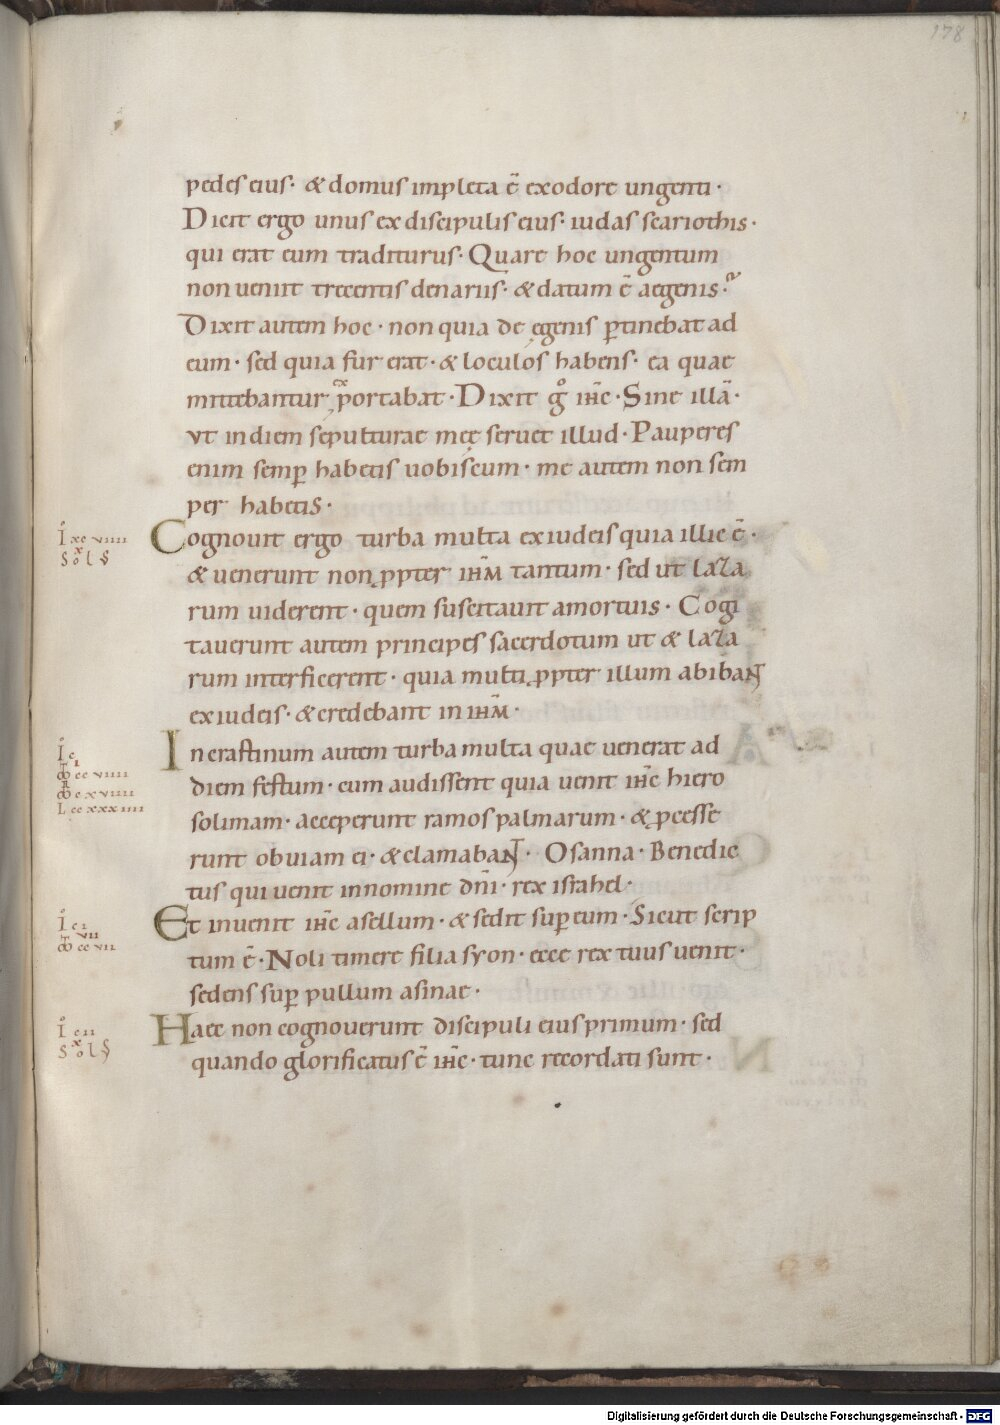 178
pedes eius· & domus impleta ē exodore ungenti·
Dicit ergo unus ex discipulis eius· iudas scariothis·
qui erat eum traditurus· Quare hoc ungentum
non venut trecentis denariis· & datum ē aegenis·
Dixit autem hoc· non quia de egenis ptinebat ad
eum· sed quia fur erat· & loculos habens· ea quae
mittebantur portabat· Dixit gͦ ihc̄· Sine illā·
vt indiem sepulturae meę seruet illud· Pauperes
enim semp habetis uobiscum· me autem non sem
per habetis·
I xc viiii
Cognouit ergo turba multa ex iudeis quia illic ē·
Sol
& uenerunt non ppter ihm̄ tantum· sed ut laza
rum uiderent· quem suscitauit amortuis· Cogi
tauerunt autem principes sacerdotum ut & laza
rum interficerent· quia multi ppter illum abibaNT
ex iudeis· & credebant in ihm̄·
I c
In crastinum autem turba multa quae uenerat ad
cc viiii
diem festum· cum audissent quia uenit ihc̄ hiero
c xviiii
L cc xxxiiii
solimam· acceperunt ramos palmarum· & pcesse
runt obuiam ei· & clamabaNT· Osanna· Benedic
tus qui uenit innomine dn̄i· rex israhel·
I ci
Et inuenit ihc̄ asellum· & sedit sup eum· Sicut scrip
vii
cc vii
tum ē· Noli timere filia syon· ecce rex tuus uenit·
sedens sup pullum asinae·
I cii
Haec non cognouerunt discipuli eius primum· sed
Sol
quando glorificatus ē ihc̄· tunc recordati sunt·
Digitalisierung gefördert durch die Deutsche Forschungsgemeinschaft - DFG